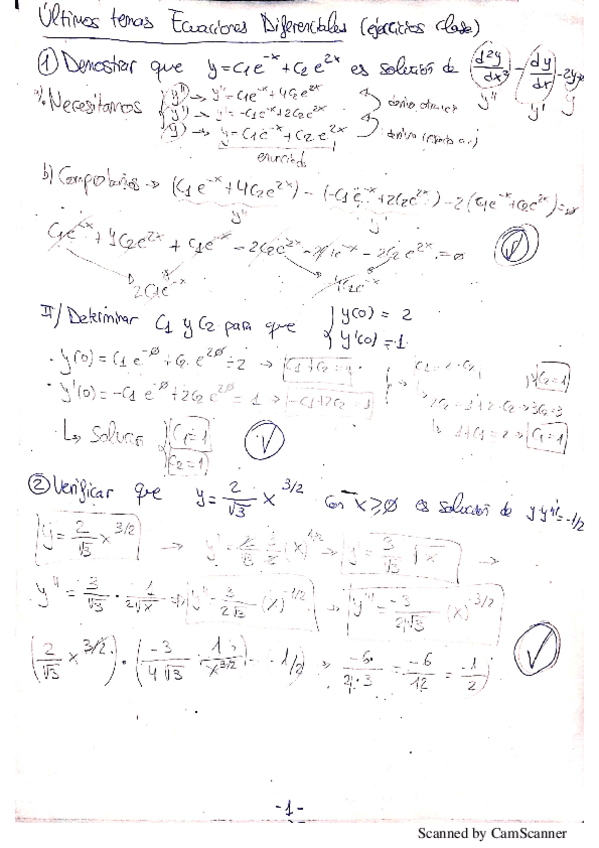 Últimos temas Ecuaciones Diferenciales (ejercicios clase)
① Demostrar que y=C1e^-x+C2e^2x es solución de (d²y/dx²)-(dy/dx)-2y=0
y'' y' y
a) Necesitamos y'' → y''=C1e^-x+4C2e^2x
y' → y'=-C1e^-x+2C2e^2x
y → y=C1e^-x+C2e^2x
enunciado
b) Comprobamos → (C1e^-x+4C2e^2x)-(-C1e^-x+2C2e^2x)-2(C1e^-x+C2e^2x)=0
y'' y'
C1e^-x+4C2e^2x+C1e^-x-2C2e^2x-2C1e^-x-2C2e^2x=0
2C1e^-x
II/ Determinar C1 y C2 para que { y(0)=2
y'(0)=1
· y(0)=C1e^-0+C2e^20=2 →
· y'(0)=-C1e^-0+2C2e^20=1 → -C1+2C2=1
C2=1
→3C2=3
1+C1=2→ C1=1
↳ Solución { C1=1
C2=1
② Verificar que y=2/√3 x^3/2 con x≥0 es solución de yy''=-1/2
y=2/√3 x^3/2 → y'= (x)^1/2 → y'=3/√3 √x →
y''=3/√3 · 1/2√x → y''=3/2√3 (x)^-1/2 →
(2/√3 x^3/2)·(-3/4√3 · 1/x^3/2) = -1/2) → -6/4·3=-6/12=-1/2
-1-
Scanned by CamScanner